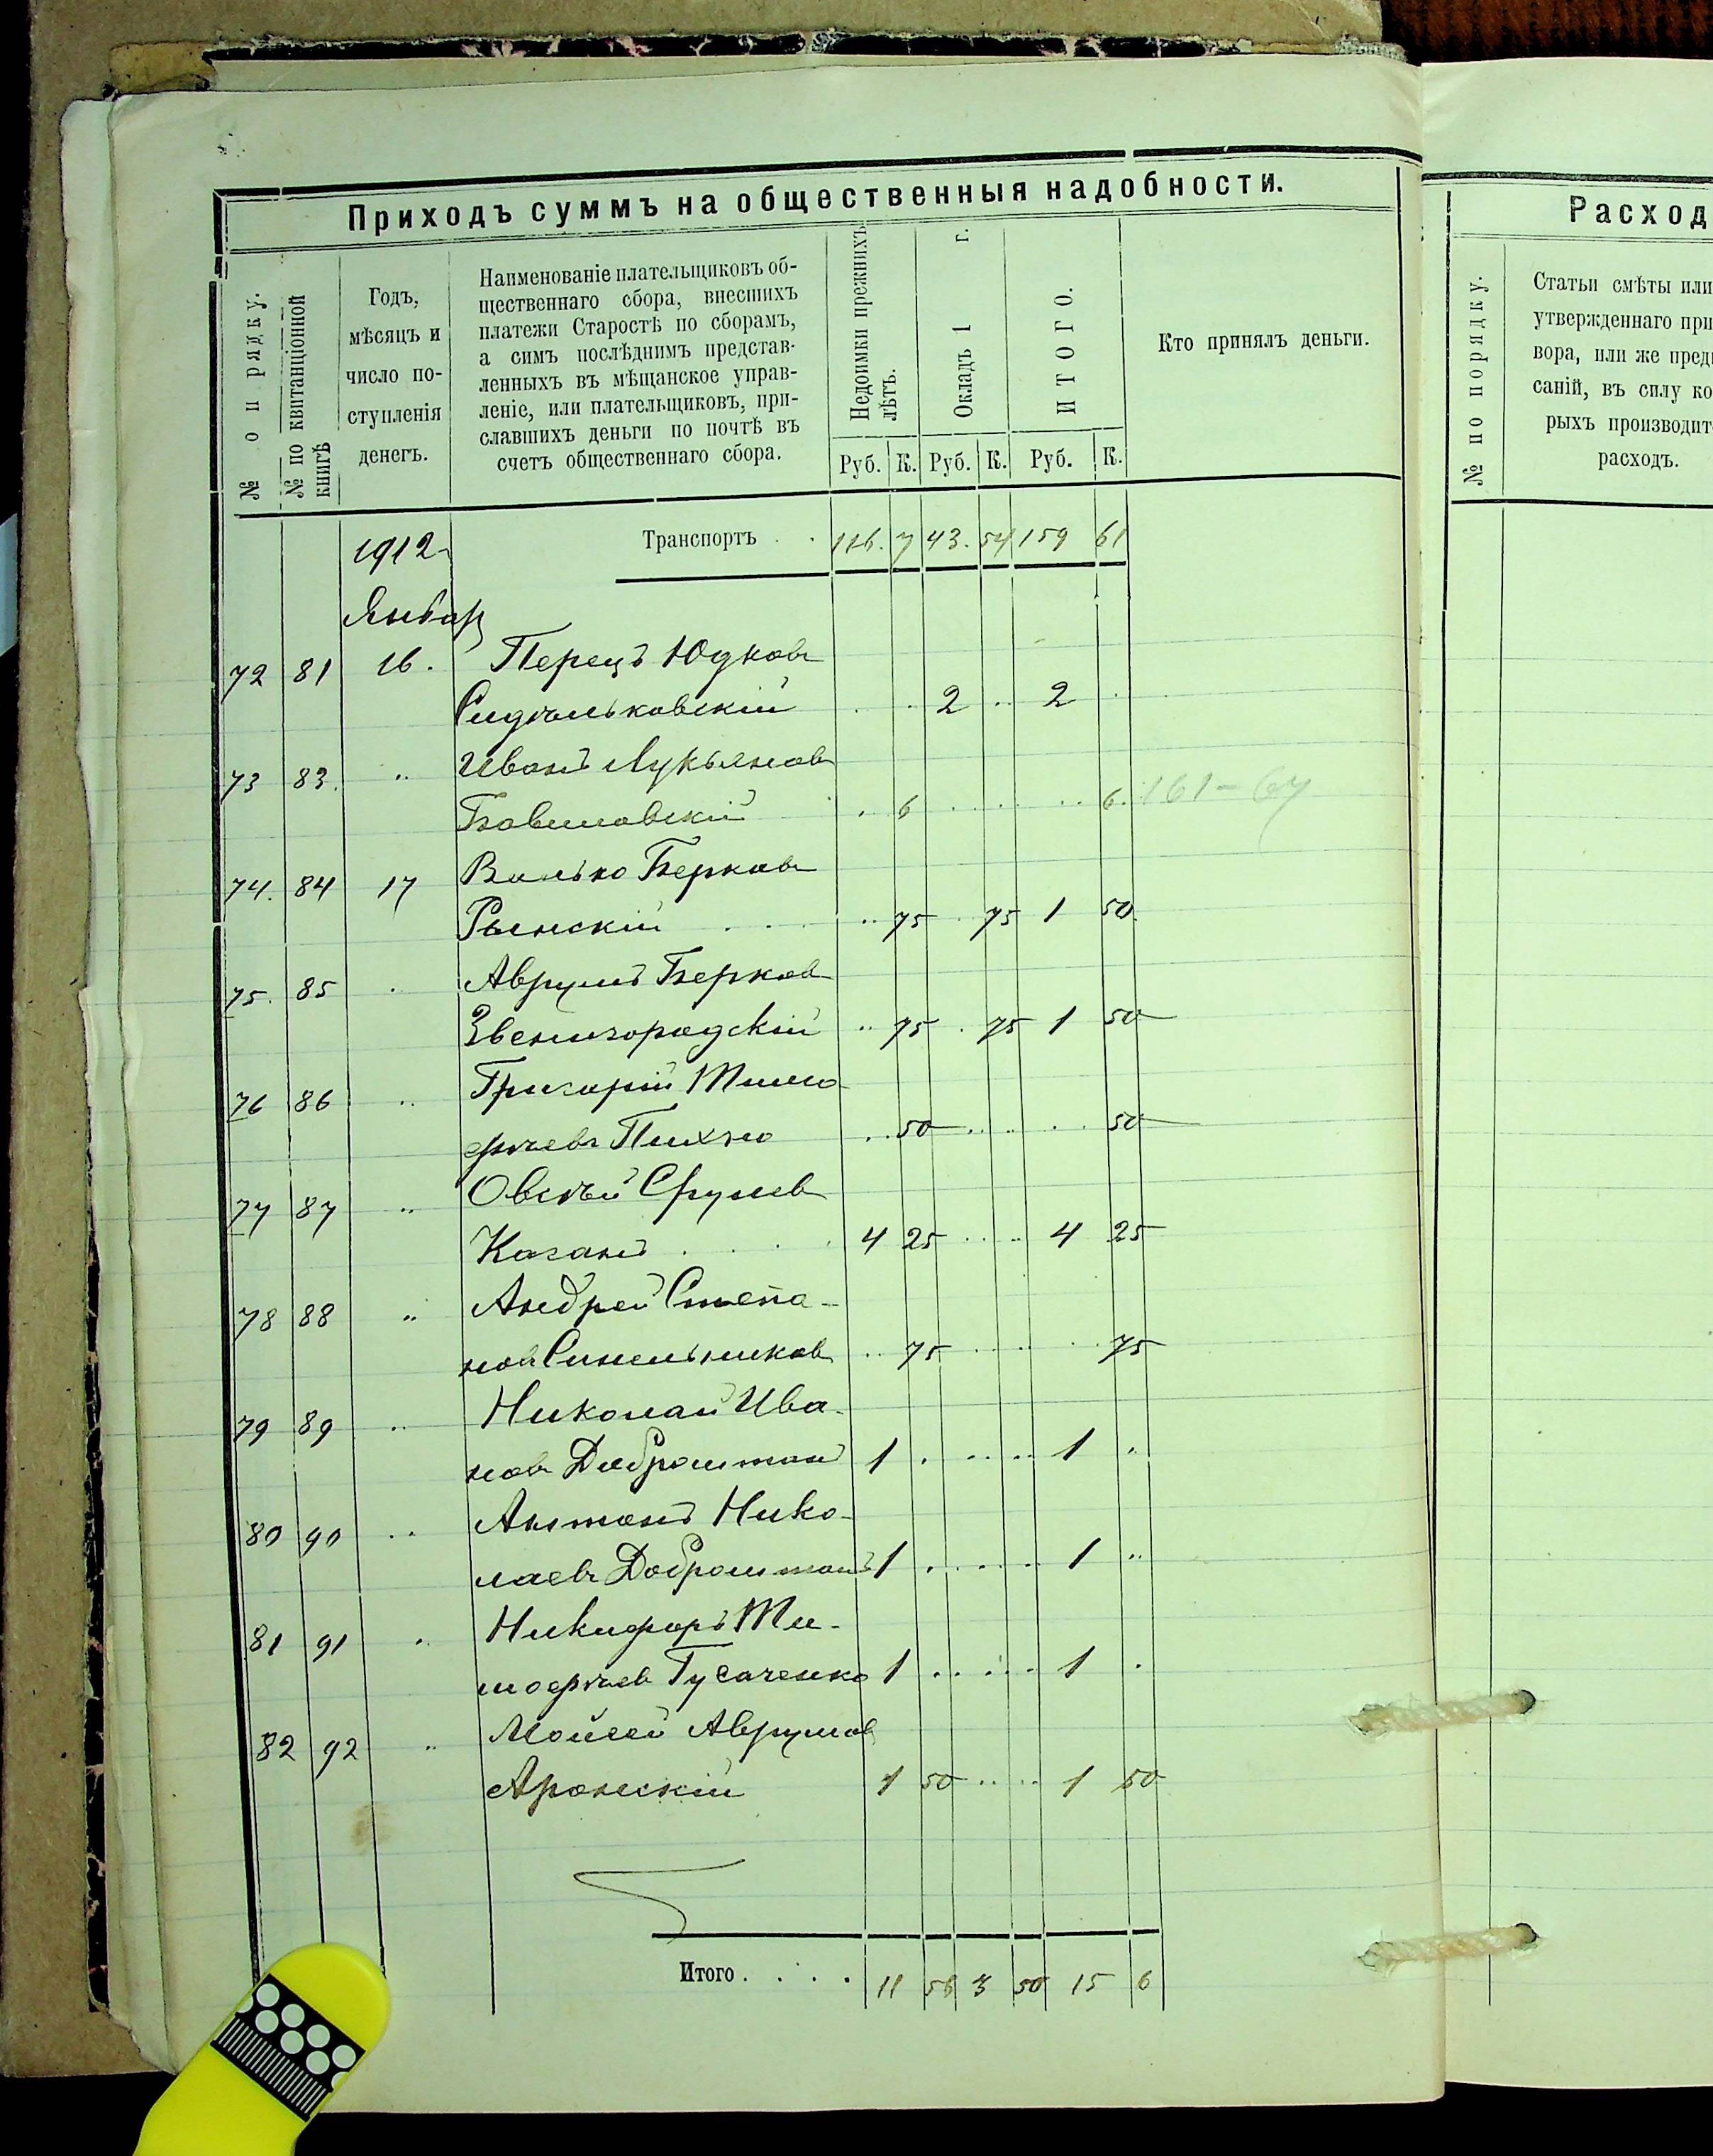 Приходъ суммъ на общественныя надобности.
№ по рядку.
№ по квитанціонной книгѣ
Годъ, мѣсяцъ и число поступленія денегъ.
Наименованіе плательщиковъ об-
щественнаго сбора, внесшихъ
платежи Старостѣ по сборамъ,
а симъ послѣднимъ представ-
ленныхъ въ мѣщанское управ-
леніе, или плательщиковъ, при-
славшихъ деньги по почтѣ въ
счетъ общественнаго сбора.
Недоимки прежнихъ лѣтъ.
Окладъ 1 г.
ИТОГО.
Кто принялъ деньги.
Руб. К. Руб. К. Руб. К.
1912 Транспортъ 116. 7 43. 54 159 61
Январ
72 81 16. Перецъ Юдковъ
2 2
73 83. " Иванъ Лукьянов
6 6. 161-67
74. 84 17 Волько Берковъ
Рынскій 75 75 1 50
75. 85 Аврумъ Берков
Звенигородскій 75 75 1 50
76 86 " Григорій Тимо
фѣевъ Пихно 50 50
77 87 " Овсѣй Срулев
Казанъ 4 25 4 25
78 88 " Андрей Степа-
новъ Синельников 75 75
79 89 " Николай Ива-
новъ Доброштан 1 1 "
80 90 " Антонъ Нико-
лаевъ Доброштанъ 1 1 "
81 91 " Никифоръ Ти-
мофѣев Гусаченко 1 1
82 92 " Мойсей Аврумов
Аронскій 1 50 1 50
Итого 11 56 3 50 15 6
Расход
№ по порядку.
Статьи смѣты или
утвержденнаго при
вора, или же пред
саній, въ силу ко
рыхъ производит
расходъ.